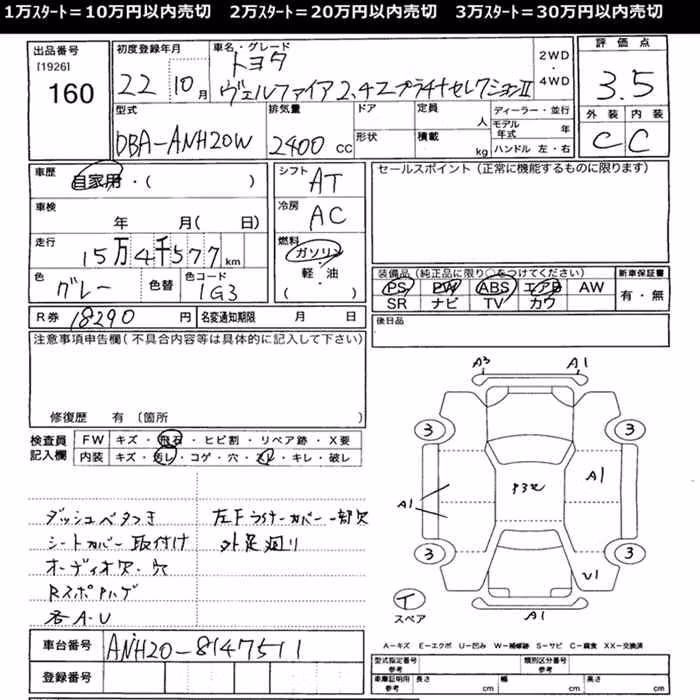 1万スタート=10万円以内売切 2万スタート=20万円以内売切 3万スタート=30万円以内売切
出品番号
[1926]
160
初度登録年月
22 10月
車名・グレード
トヨタ
ヴェルファイア2.4Zプラチナセレクション II
2WD
・
4WD
評価点
3.5
外装 内装
C C
型式
DBA-ANH20W
排気量
2400 CC
ドア
形状
定員
人
積載
kg
ディーラー・並行
モデル年式 年
ハンドル 左・右
車歴
自家用・( )
車検
年 月( 日)
走行
15万4千577 km
色
グレー
色替
色コード
1G3
シフト
AT
冷房
AC
燃料
ガソリン
軽・油
( )
セールスポイント(正常に機能するものに限ります)
装備品(純正品に限り○をつけてください)
PS PW ABS エアB AW
SR ナビ TV カワ
新車保証書
有・無
後日品
R券 18290 円
名変通知期限 月 日
注意事項申告欄(不具合内容等は具体的に記入して下さい)
修復歴 有 〔箇所 〕
検査員
記入欄
FW キズ・飛石・ヒビ割・リペア跡・X要
内装 キズ・汚レ・コゲ・穴・スレ・キレ・破レ
ダッシュベタつき
シートカバー取付け
オーディオ欠・穴
Rスポハゲ
各A・U
左Fライナーカバー一部欠
外足廻り
A3 A1
3 3
A1
A1
3 3
U1
T
スペア
A1
A-キズ E-エクボ U-凹み W-補修跡 S-サビ C-腐食 XX-交換済
車台番号
ANH20-8147511
登録番号
型式指定番号
参考
類別区分番号
参考
車庫証明用
参考
長さ cm
幅 cm
高さ cm